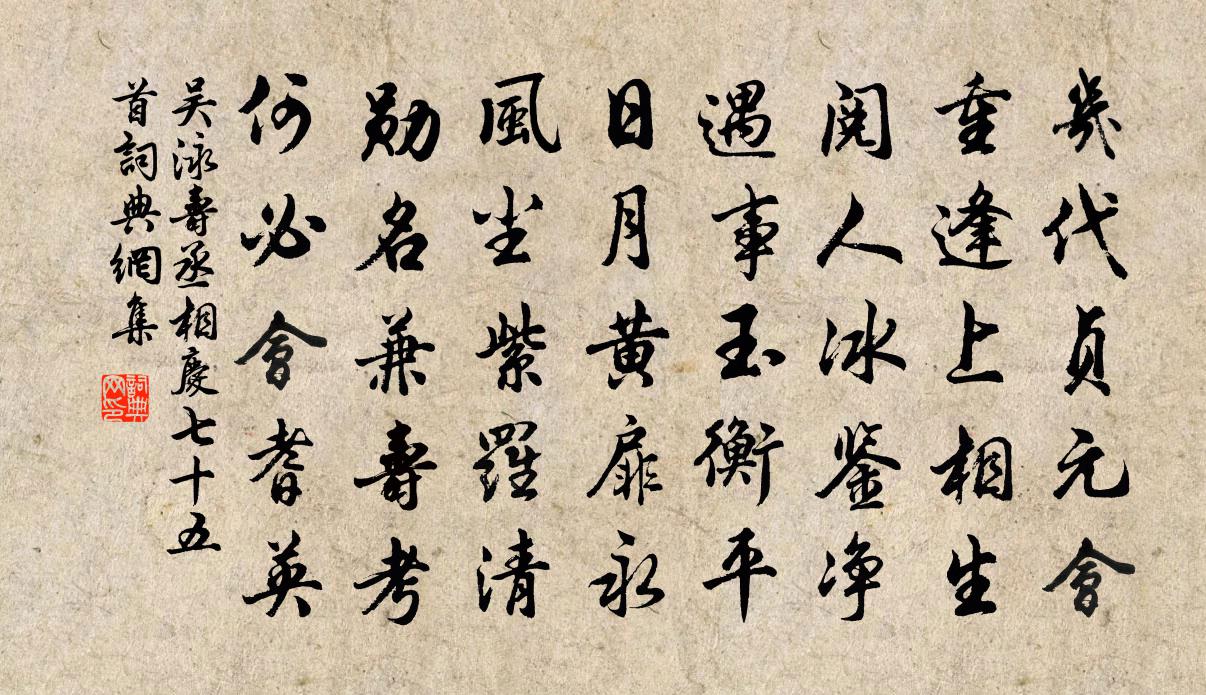 幾代貞元會
重逢上相生
閱人冰鉴净
遇事玉衡平
日月黄扉永
風塵紫羅清
勛名兼壽考
何必會耆英
吴泳壽丞相慶七十五
首詞典網集
詞典
网印